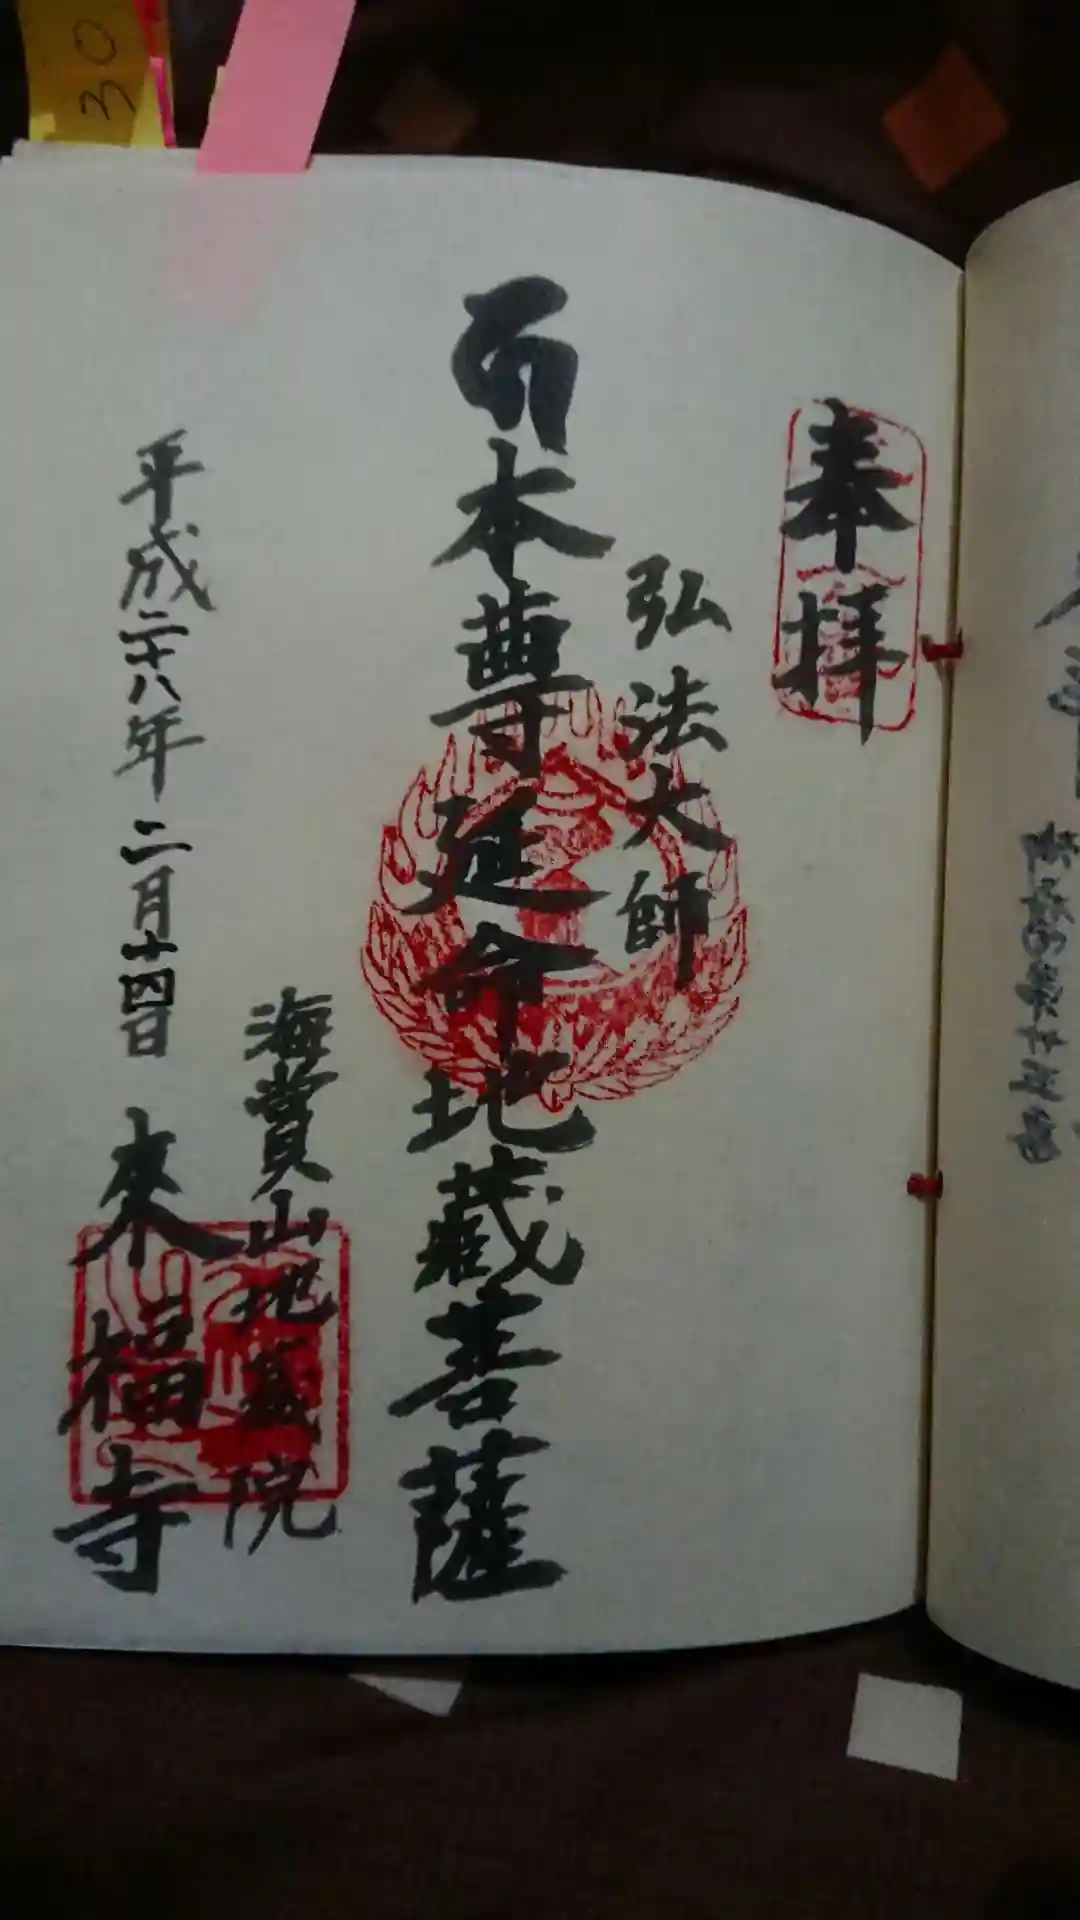 奉拝
弘法大師
本尊延命地蔵菩薩
海賞山地蔵院
平成二十八年二月十四日
来福寺
30